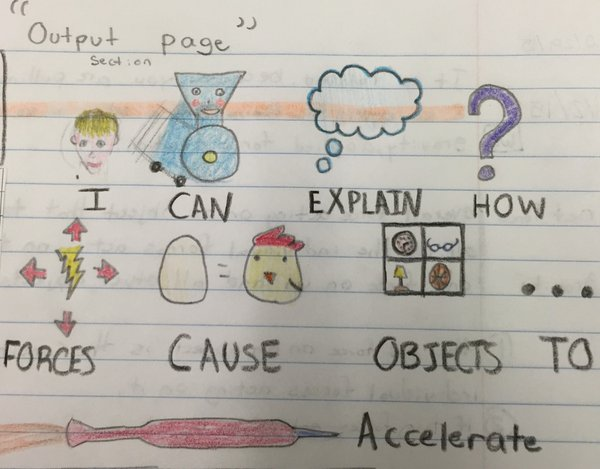 " Output page "
Section
I CAN EXPLAIN HOW
FORCES CAUSE OBJECTS TO
Accelerate